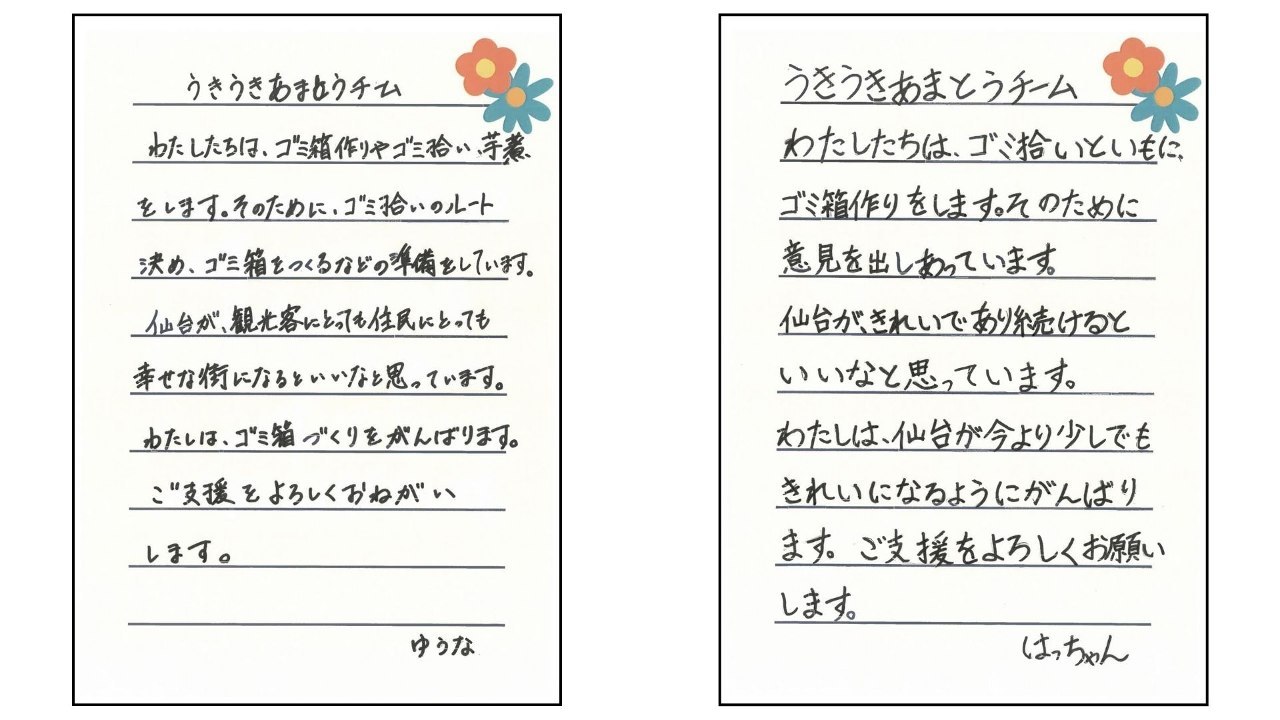 うきうきあまとうチーム
わたしたちは、ゴミ箱作りやゴミ拾い、芋煮
をします。そのために、ゴミ拾いのルート
決め、ゴミ箱をつくるなどの準備をしています。
仙台が、観光客にとっても住民にとっても
幸せな街になるといいなと思っています。
わたしは、ゴミ箱づくりをがんばります。
ご支援をよろしくおねがい
します。
ゆうな
うきうきあまとうチーム
わたしたちは、ゴミ拾いといもに、
ゴミ箱作りをします。そのために
意見を出しあっています。
仙台が、きれいであり続けると
いいなと思っています。
わたしは、仙台が今より少しでも
きれいになるようにがんばり
ます。ご支援をよろしくお願い
します。
はっちゃん